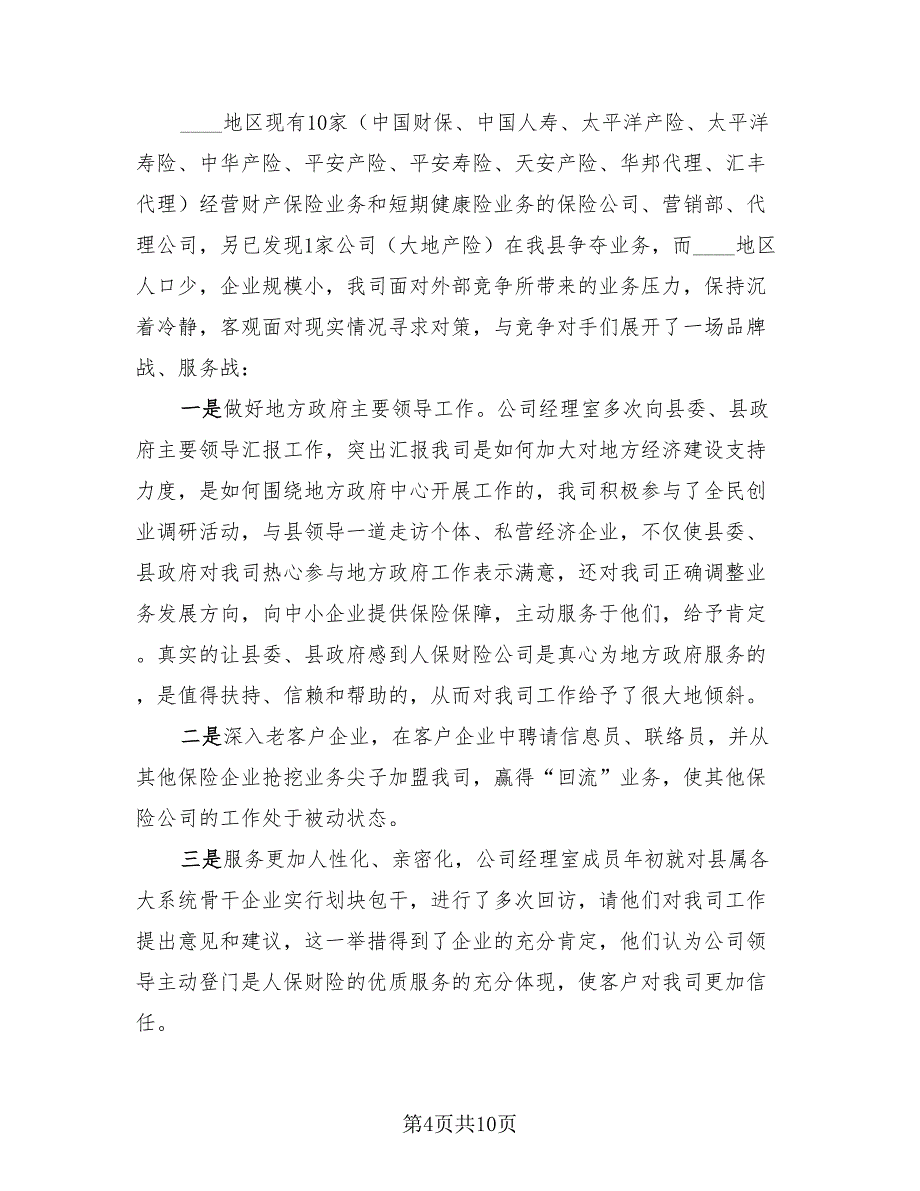 ____地区现有10家（中国财保、中国人寿、太平洋产险、太平洋
寿险、中华产险、平安产险、平安寿险、天安产险、华邦代理、汇丰
代理）经营财产保险业务和短期健康险业务的保险公司、营销部、代
理公司，另已发现1家公司（大地产险）在我县争夺业务，而____地区
人口少，企业规模小，我司面对外部竞争所带来的业务压力，保持沉
着冷静，客观面对现实情况寻求对策，与竞争对手们展开了一场品牌
战、服务战：
一是做好地方政府主要领导工作。公司经理室多次向县委、县政
府主要领导汇报工作，突出汇报我司是如何加大对地方经济建设支持
力度，是如何围绕地方政府中心开展工作的，我司积极参与了全民创
业调研活动，与县领导一道走访个体、私营经济企业，不仅使县委、
县政府对我司热心参与地方政府工作表示满意，还对我司正确调整业
务发展方向，向中小企业提供保险保障，主动服务于他们，给予肯定
。真实的让县委、县政府感到人保财险公司是真心为地方政府服务的
，是值得扶持、信赖和帮助的，从而对我司工作给予了很大地倾斜。
二是深入老客户企业，在客户企业中聘请信息员、联络员，并从
其他保险企业抢挖业务尖子加盟我司，赢得“回流”业务，使其他保
险公司的工作处于被动状态。
三是服务更加人性化、亲密化，公司经理室成员年初就对县属各
大系统骨干企业实行划块包干，进行了多次回访，请他们对我司工作
提出意见和建议，这一举措得到了企业的充分肯定，他们认为公司领
导主动登门是人保财险的优质服务的充分体现，使客户对我司更加信
任。
第4页共10页